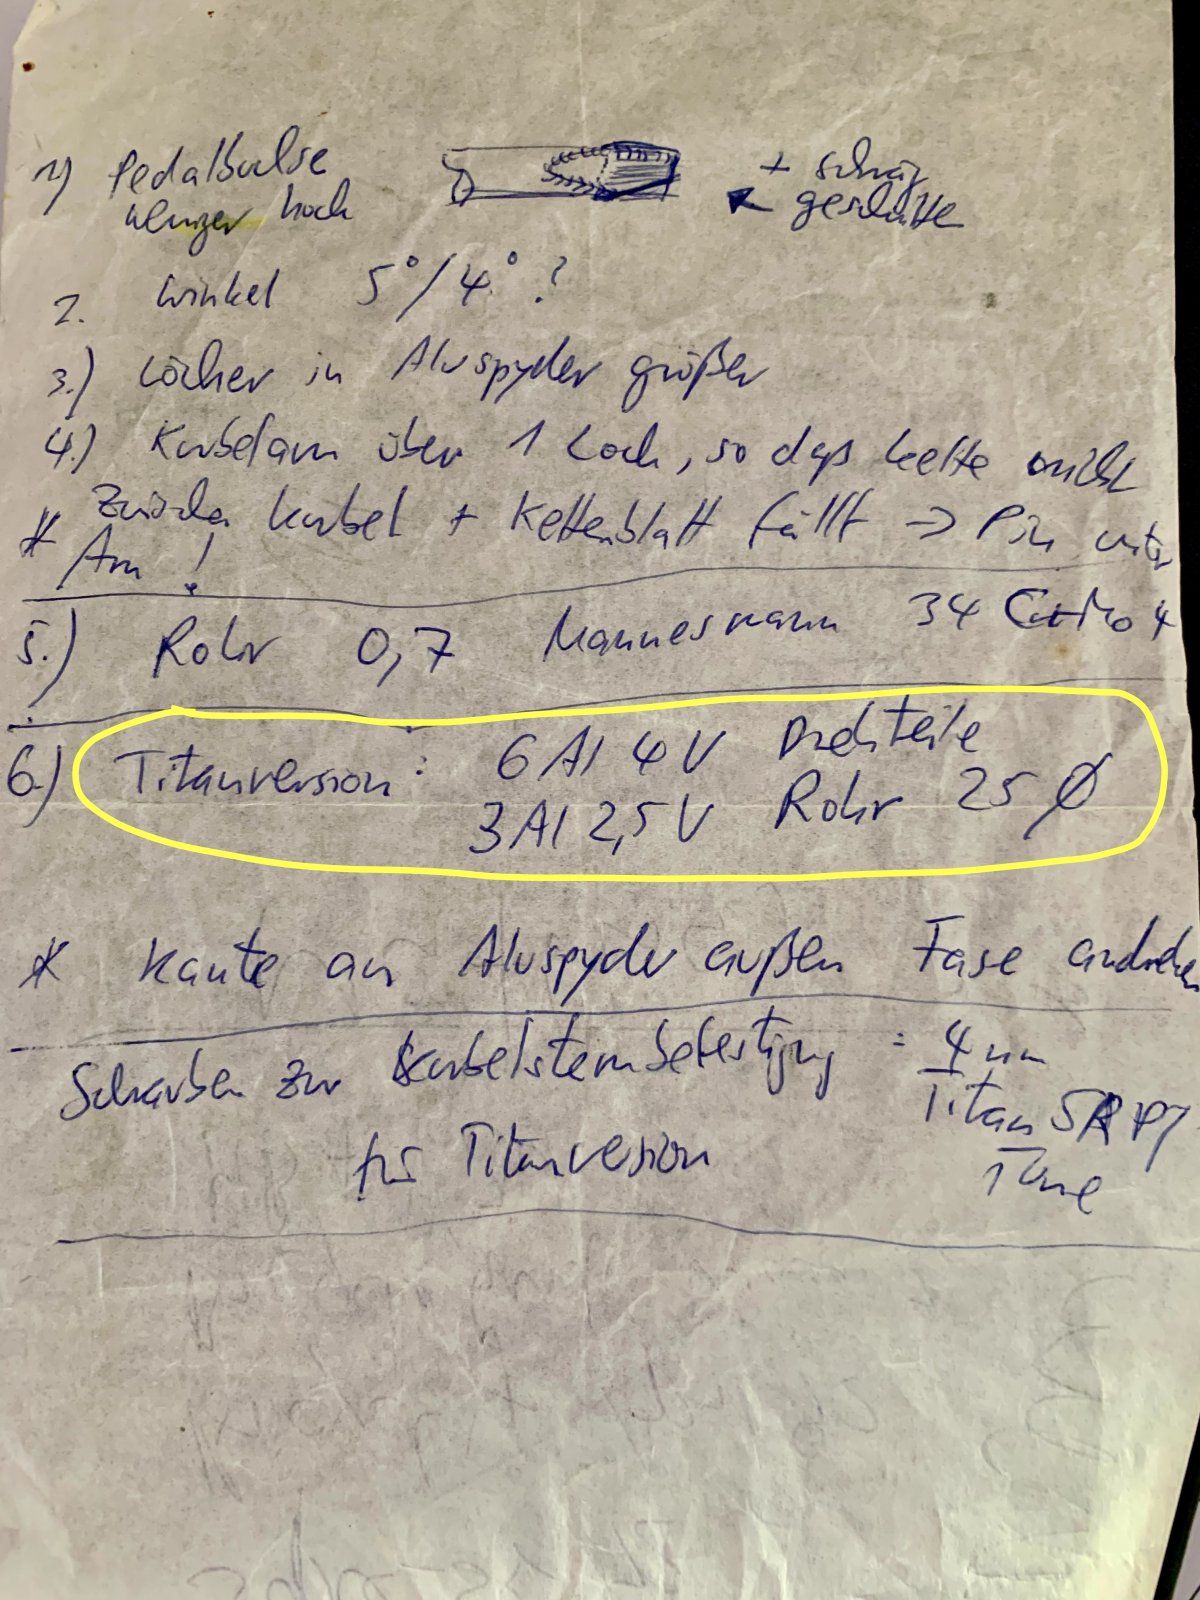 1) Pedalbuchse
weniger hoch
+ schräg
geschnitten
2. Winkel 5°/4°?
3.) Löcher in Aluspyder größer
4.) Kurbelarm über 1 Loch, so daß Kette nicht
zwischen Kurbel + Kettenblatt fällt → Pin unter
* Arm!
5.) Rohr 0,7 Mannesmann 34 CrMo 4
6.) Titanversion: 6 Al 4 V Drehteile
3 Al 2,5 V Rohr 25 Ø
* Kante an Aluspyder außen Fase andrehen
Schrauben zur Kurbelsternbefestigung = 4 mm
Titan
für Titanversion